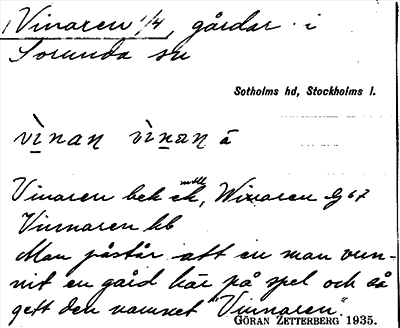 Vinaren 1/4, gårdar i
Sorunda sn
Sotholms hd, Stockholms l.
vìnan vìnan å
Vinaren bek ek, Winaren Gb7
Vinnaren kb
Man påstår att en man vun-
nit en gård här på spel och så
gett den namnet "Vinnaren".
GÖRAN ZETTERBERG 1935.